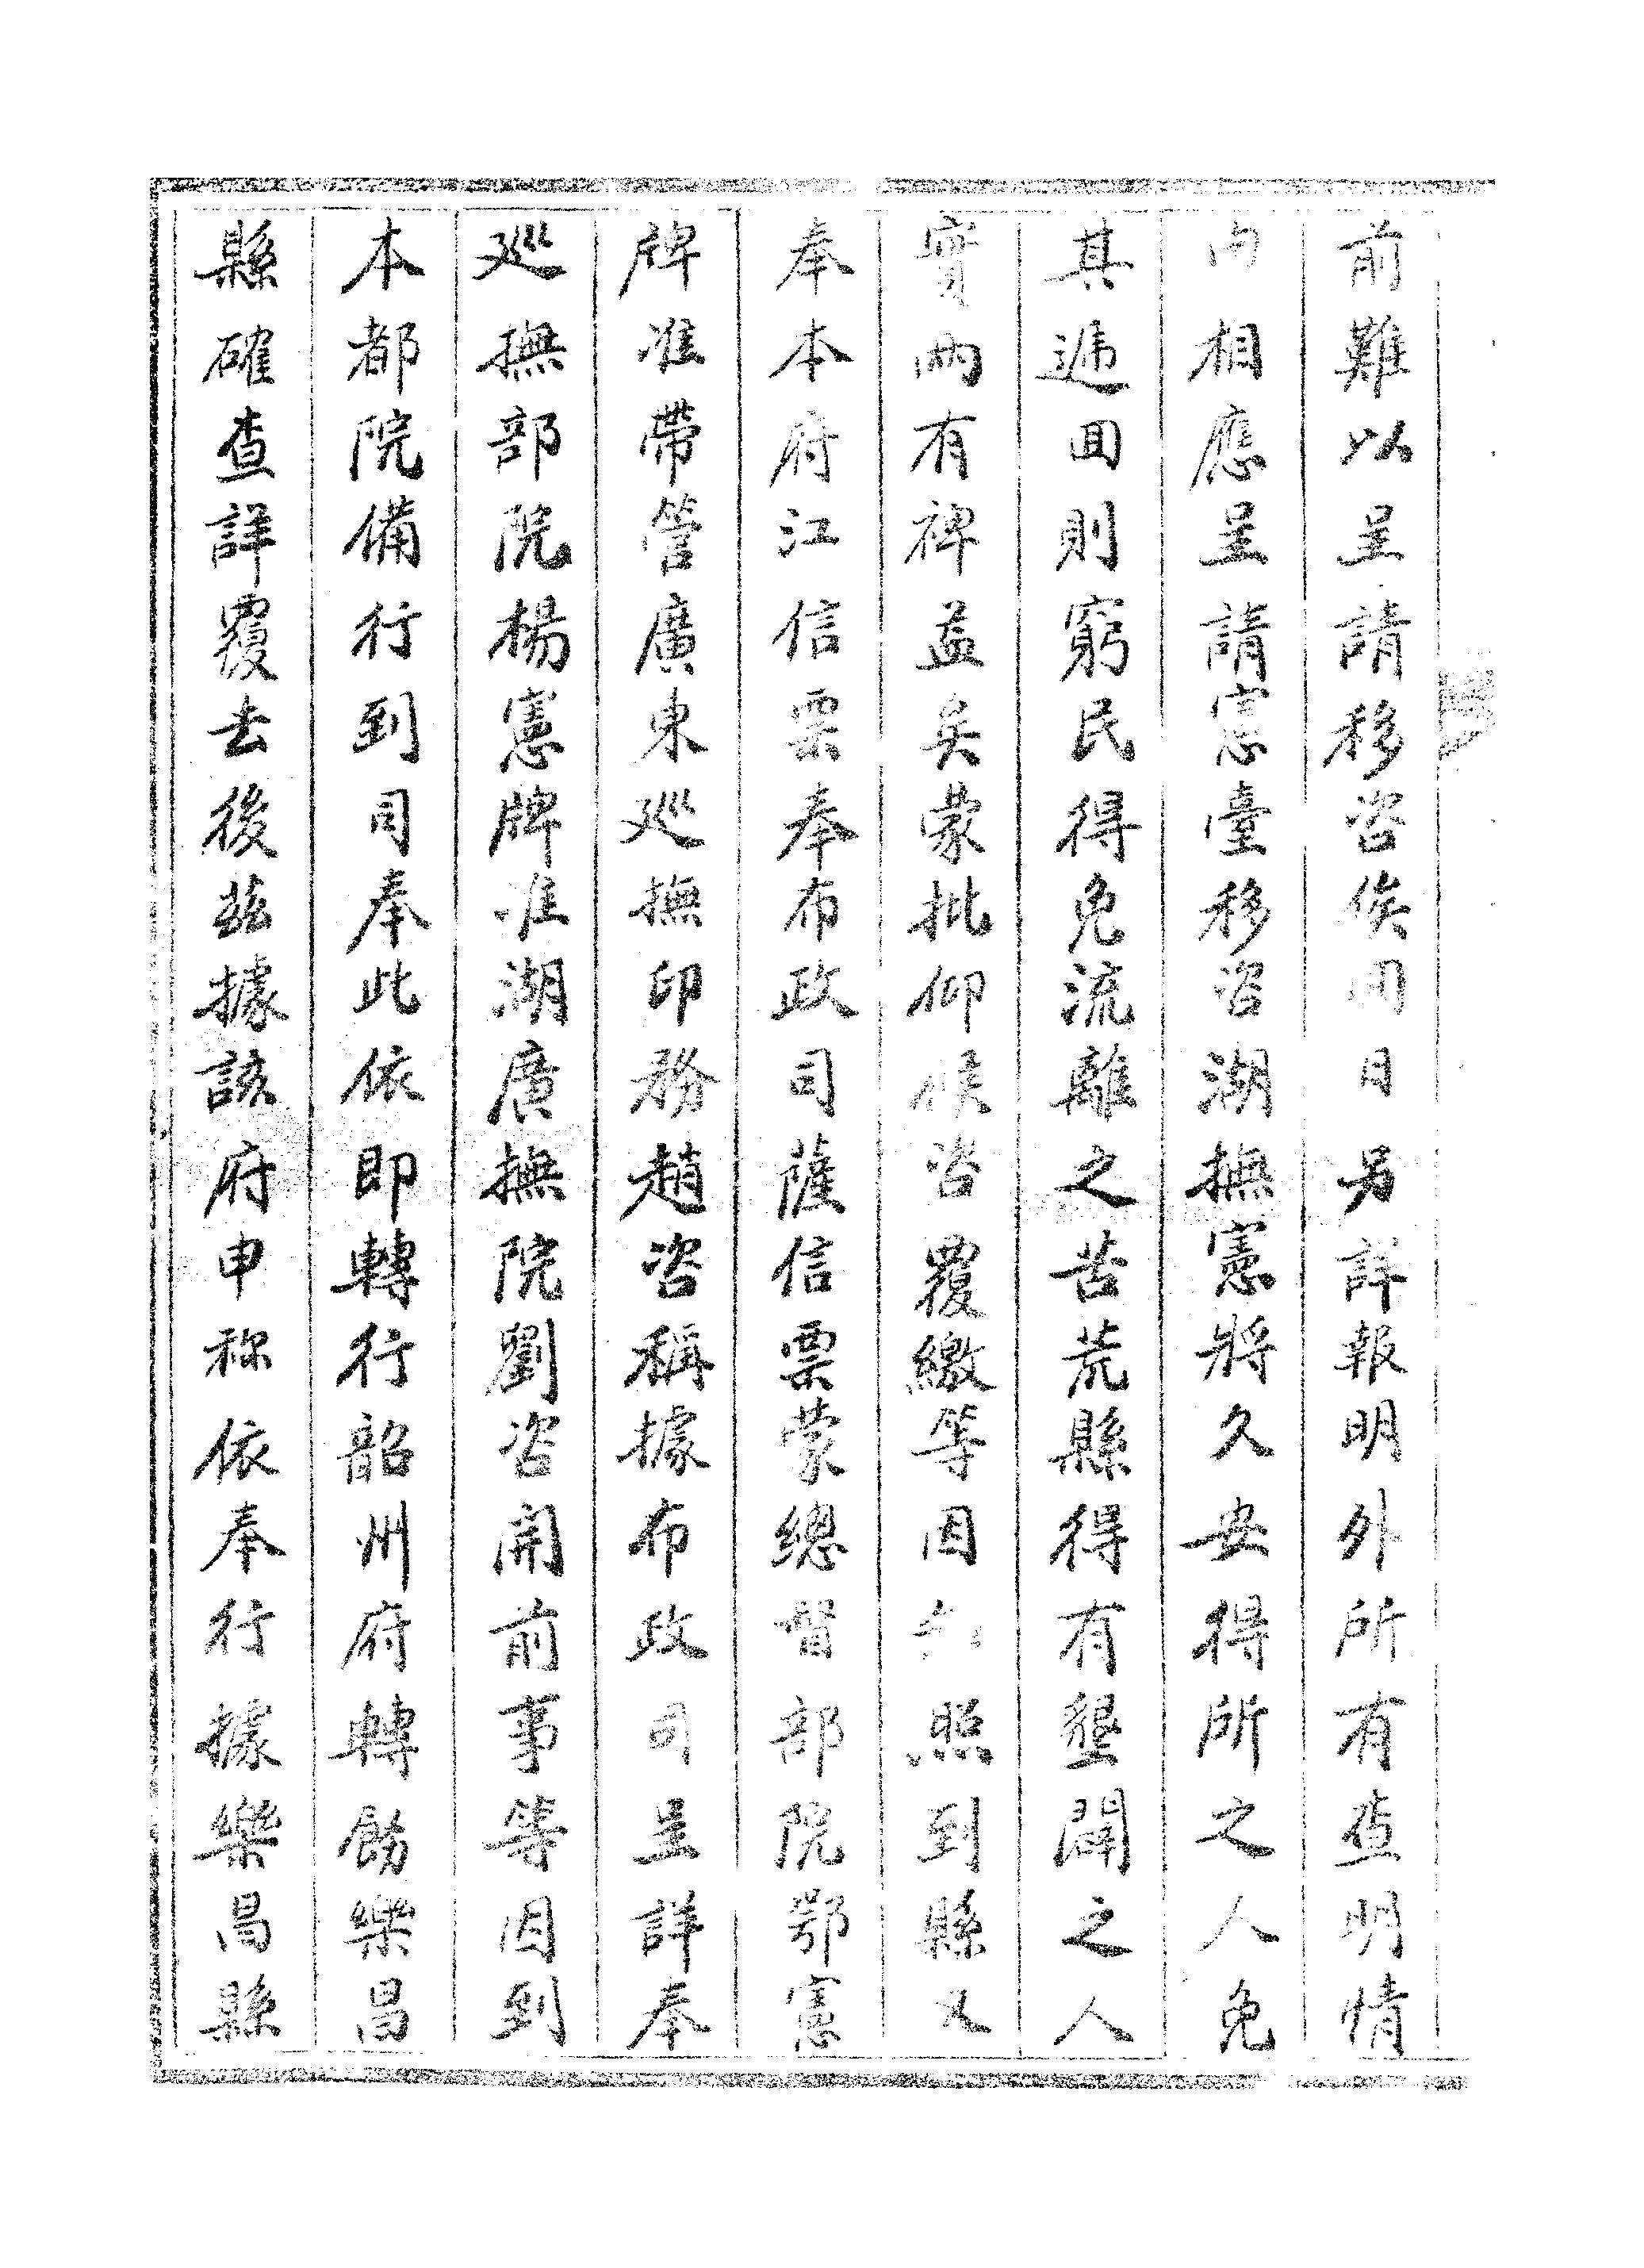 前難以呈請移咨俟開日另詳報明外所有查明情
由相應呈請憲臺移咨湖撫憲將久安得所之人免
其逓回則窮民得免流離之苦荒縣得有墾闢之人
實兩有裨益矣蒙批仰候咨覆繳等因 照到縣又
奉本府江信票奉布政司薩信票蒙總督部院鄂憲
牌准帶管廣東廵撫印務趙咨稱據布政司呈詳奉
廵撫部院楊憲牌准湖廣撫院劉咨開前事等因到
本都院備行到司奉此依即轉行韶州府轉飭樂昌
縣確查詳覆去後茲據該府申称依奉行據樂昌縣